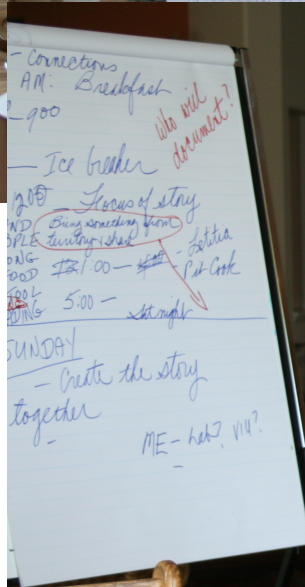 - Connections
AM: Breakfast
- 900
Who will
document?
— Ice breaker
1200 - Focus of story
Bring something from
territory & share
1:00 — - Letitia
- Pat Cook
5:00 —
Sat night
SUNDAY
- Create the story
together
ME -